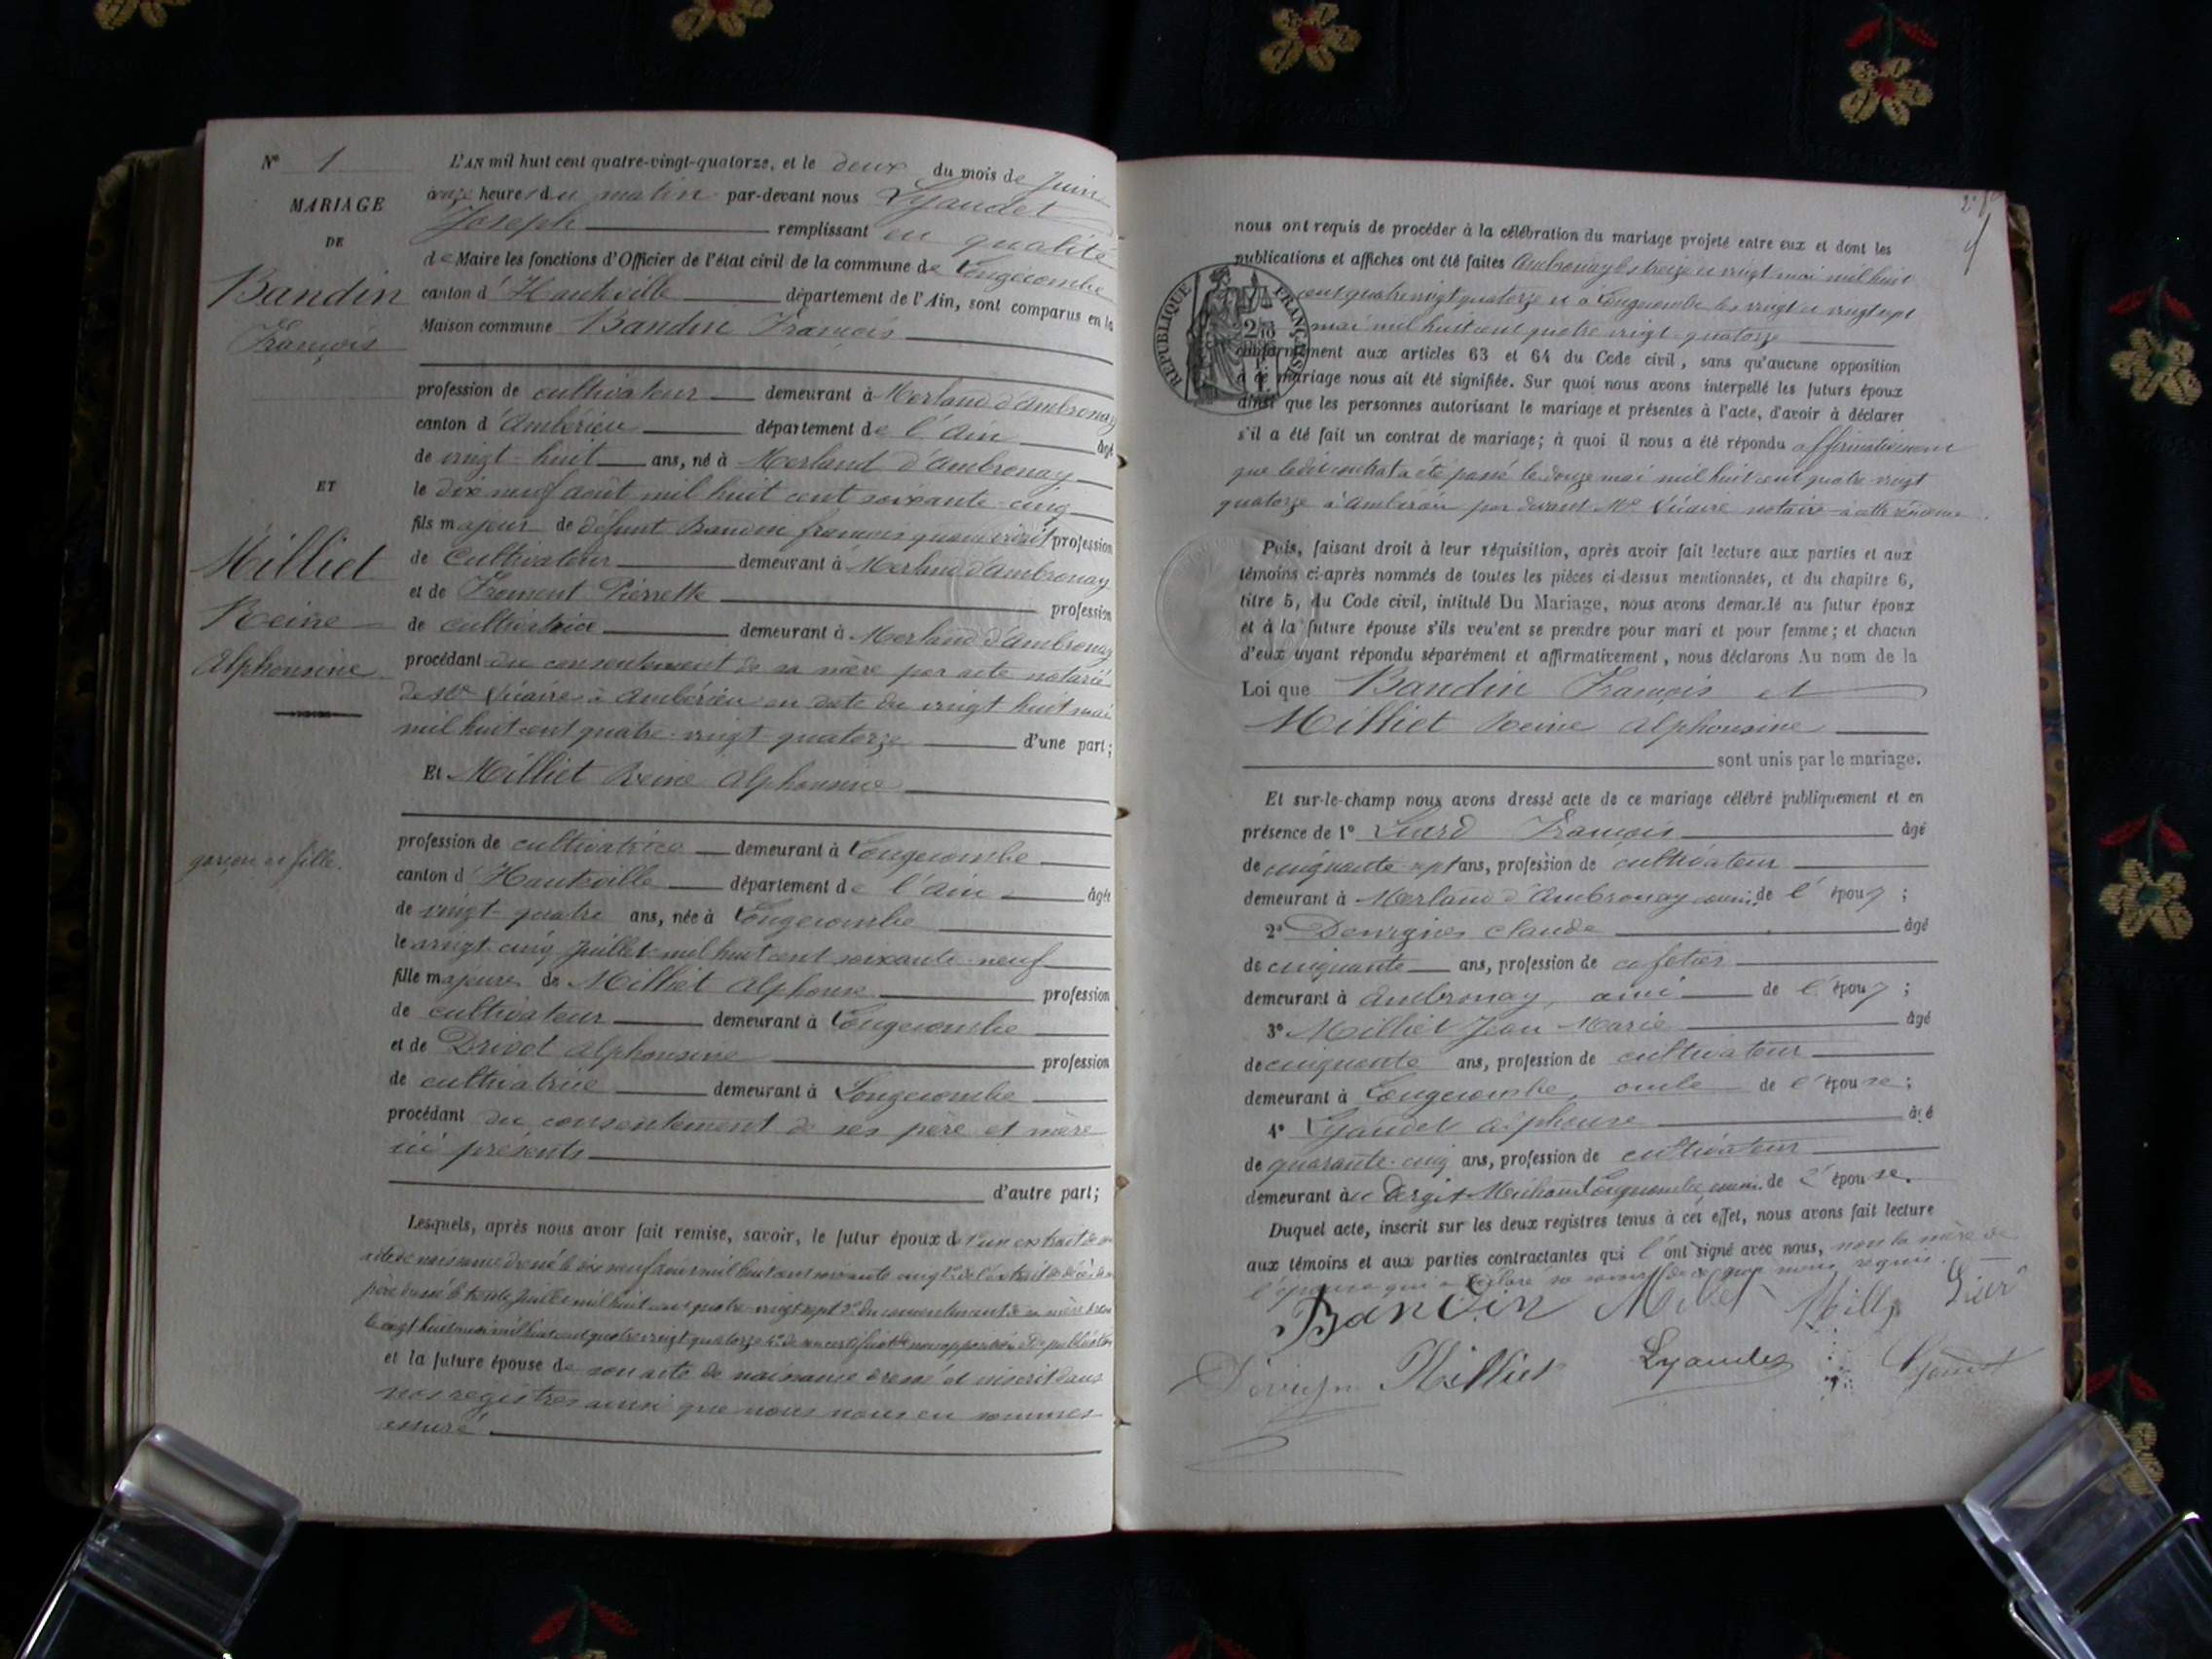 N° 1
MARIAGE
DE
Bandin
François
ET
Milliet
Reine
Alphonsine
garçon et fille.
L'AN mil huit cent quatre-vingt-quatorze, et le deux du mois de Juin
à onze heures du matin par-devant nous Lyaudet
Joseph remplissant en qualité
de Maire les fonctions d'Officier de l'état civil de la commune de Longecombe
canton d'Hauteville département de l'Ain, sont comparus en la
Maison commune Bandin François
profession de cultivateur demeurant à Merland d'Ambronay
canton d'Ambérieu département de l'Ain âgé
de vingt-huit ans, né à Merland d'Ambronay
le dix neuf août mil huit cent soixante-cinq
fils majeur de défunt Bandin françois quand vivait profession
de Cultivateur demeurant à Merland d'Ambronay
et de Froment Pierrette profession
de cultivatrice demeurant à Merland d'Ambronay
procédant du consentement de sa mère par acte notarié
de Me Vicaire à Ambérieu en date du vingt huit mai
mil huit cent quatre-vingt quatorze d'une part;
Et Milliet Reine Alphonsine
profession de cultivatrice demeurant à Longecombe
canton d'Hauteville département de l'Ain âgée
de vingt-quatre ans, née à Longecombe
le vingt-cinq Juillet mil huit cent soixante-neuf
fille majeure de Milliet Alphonse profession
de cultivateur demeurant à Longecombe
et de Drevet Alphonsine profession
de cultivatrice demeurant à Longecombe
procédant du consentement de ses père et mère
ici présents
d'autre part;
Lesquels, après nous avoir fait remise, savoir, le futur époux d 1° un extrait de son
acte de naissance dressé le dix neuf août mil huit cent soixante cinq de l'extrait de décès de son
père dressé le trente Juillet mil huit cent quatre-vingt sept 3° du consentement de sa mère
le vingt huit mai mil huit cent quatre vingt quatorze 4° de un certificat de non opposition de publication
et la future épouse de son acte de naissance dressé et inscrit dans
nos registres ainsi que nous nous en sommes
assuré
nous ont requis de procéder à la célébration du mariage projeté entre eux et dont les
publications et affiches ont été faites Ambronay les treize et vingt mai mil huit
cent quatre vingt quatorze et à Longecombe les vingt et vingt sept
mai mil huit cent quatre vingt-quatorze
conformément aux articles 63 et 64 du Code civil, sans qu'aucune opposition
à ce mariage nous ait été signifiée. Sur quoi nous avons interpellé les futurs époux
ainsi que les personnes autorisant le mariage et présentes à l'acte, d'avoir à déclarer
s'il a été fait un contrat de mariage; à quoi il nous a été répondu affirmativement
que ledit contrat a été passé le douze mai mil huit cent quatre-vingt
quatorze à Ambérieu par devant Me Vicaire notaire à cette résidence.
RÉPUBLIQUE FRANÇAISE
Puis, faisant droit à leur réquisition, après avoir fait lecture aux parties et aux
témoins ci-après nommés de toutes les pièces ci-dessus mentionnées, et du chapitre 6,
titre 5, du Code civil, intitulé Du Mariage, nous avons demandé au futur époux
et à la future épouse s'ils veulent se prendre pour mari et pour femme; et chacun
d'eux ayant répondu séparément et affirmativement, nous déclarons Au nom de la
Loi que Bandin François et
Milliet Reine Alphonsine
sont unis par le mariage.
Et sur-le-champ nous avons dressé acte de ce mariage célébré publiquement et en
présence de 1° François âgé
de cinquante sept ans, profession de cultivateur
demeurant à Merland d'Ambronay ami de l'époux;
2° Claude âgé
de cinquante ans, profession de cafetier
demeurant à Ambronay, ami de l'époux;
3° Milliet Jean Marie âgé
de cinquante ans, profession de cultivateur
demeurant à Longecombe, oncle de l'épouse;
4° Lyaudet Alphonse âgé
de quarante-cinq ans, profession de cultivateur
demeurant à Longecombe, ami de l'épouse.
Duquel acte, inscrit sur les deux registres tenus à cet effet, nous avons fait lecture
aux témoins et aux parties contractantes qui l'ont signé avec nous, non la mère de
l'épouse qui a déclaré ne savoir de ce par nous requis.
Bandin Milliet
Milliet Lyaudet